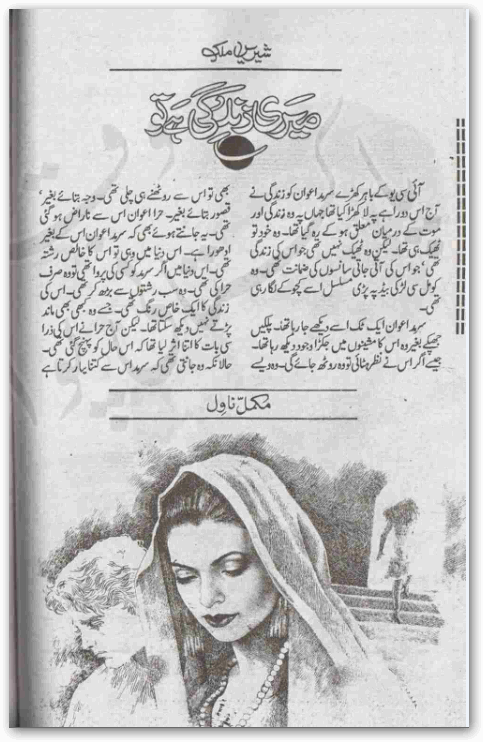 شیریں ملک
میری زندگی ہے تو
آئی سی یو کے باہر کھڑے سرمد اعوان کو زندگی نے
آج اس دوراہے پہ لا کھڑا کیا تھا جہاں پہ وہ زندگی اور
موت کے درمیان معلق ہو کے رہ گیا تھا۔ وہ خود تو
ٹھیک ہی تھا۔ لیکن وہ ٹھیک نہیں تھی جو اس کی زندگی
تھی‘ جو اس کی آتی جاتی سانسوں کی ضمانت تھی۔ وہ
کومل سی لڑکی بیڈ پہ پڑی مسلسل اسے کچوکے لگا رہی
تھی۔
سرمد اعوان ایک ٹک اسے دیکھے جا رہا تھا۔ پلکیں
جھپکے بغیر وہ اس کا مشینوں میں جکڑا وجود دیکھ رہا تھا۔
جیسے اگر اس نے نظر ہٹائی تو وہ روٹھ جائے گی۔ وہ ویسے
بھی تو اس سے روٹھنے ہی چلی تھی۔ وجہ بتائے بغیر‘
قصور بتائے بغیر۔ حرا اعوان اس سے ناراض ہو گئی
تھی۔ یہ جانتے ہوئے بھی کہ سرمد اعوان اس کے بغیر
ادھورا ہے۔ اس دنیا میں وہی تو اس کا خالص رشتہ
تھی۔ اس دنیا میں اگر سرمد کو کسی کی پروا تھی تو وہ صرف
حرا کی تھی۔ وہ سب رشتوں سے بڑھ کر تھی۔ اس کی
زندگی کا ایک خاص رنگ تھی۔ جسے وہ بھی بھی ماند
پڑتے نہیں دیکھ سکتا تھا۔ لیکن آج حرا نے اس کی ذرا
سی بات کا اتنا اثر لیا تھا کہ اس حال کو پہنچ گئی تھی۔
حالانکہ وہ جانتی تھی کہ سرمد اس سے کتنا پیار کرتا ہے
مکمل ناول